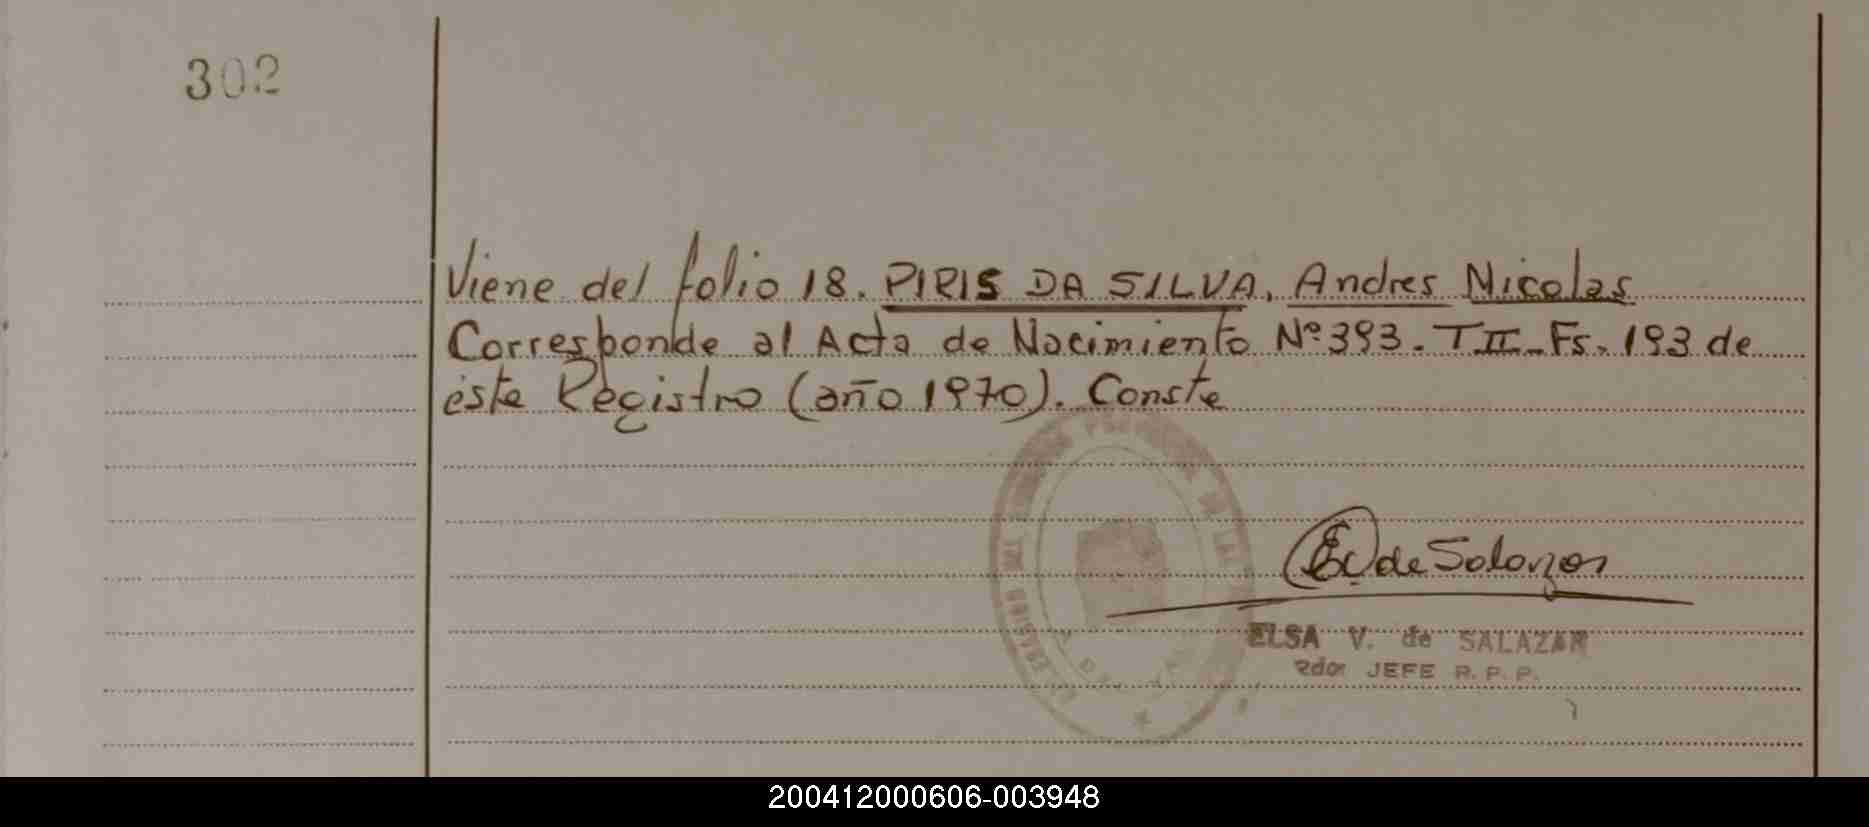 302
Viene del folio 18. PIRIS DA SILVA, Andres Nicolas
Corresponde al Acta de Nacimiento Nº 393. T II_Fs. 193 de
éste Registro (año 1970). Conste
de Salazar
ELSA V. de SALAZAR
2do. JEFE R. P. P.
200412000606-003948